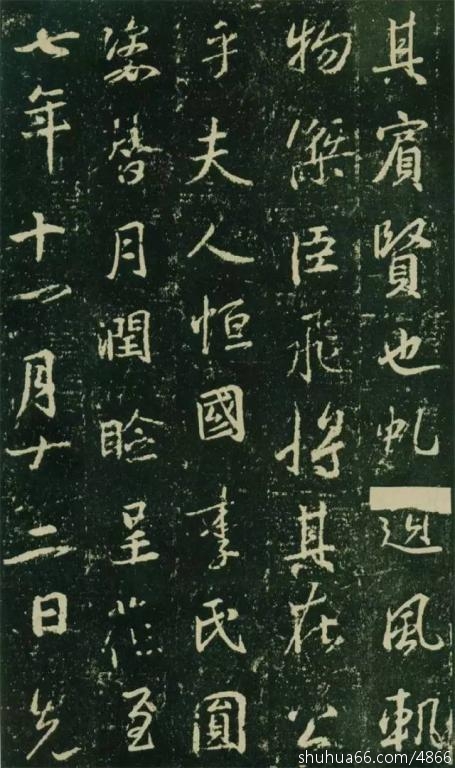 其賓賢也風
物臣飛將其在公
乎夫人恒國李氏圓
姿替月潤臉呈至
七年十一月十二日先
shuhua66.com/4866